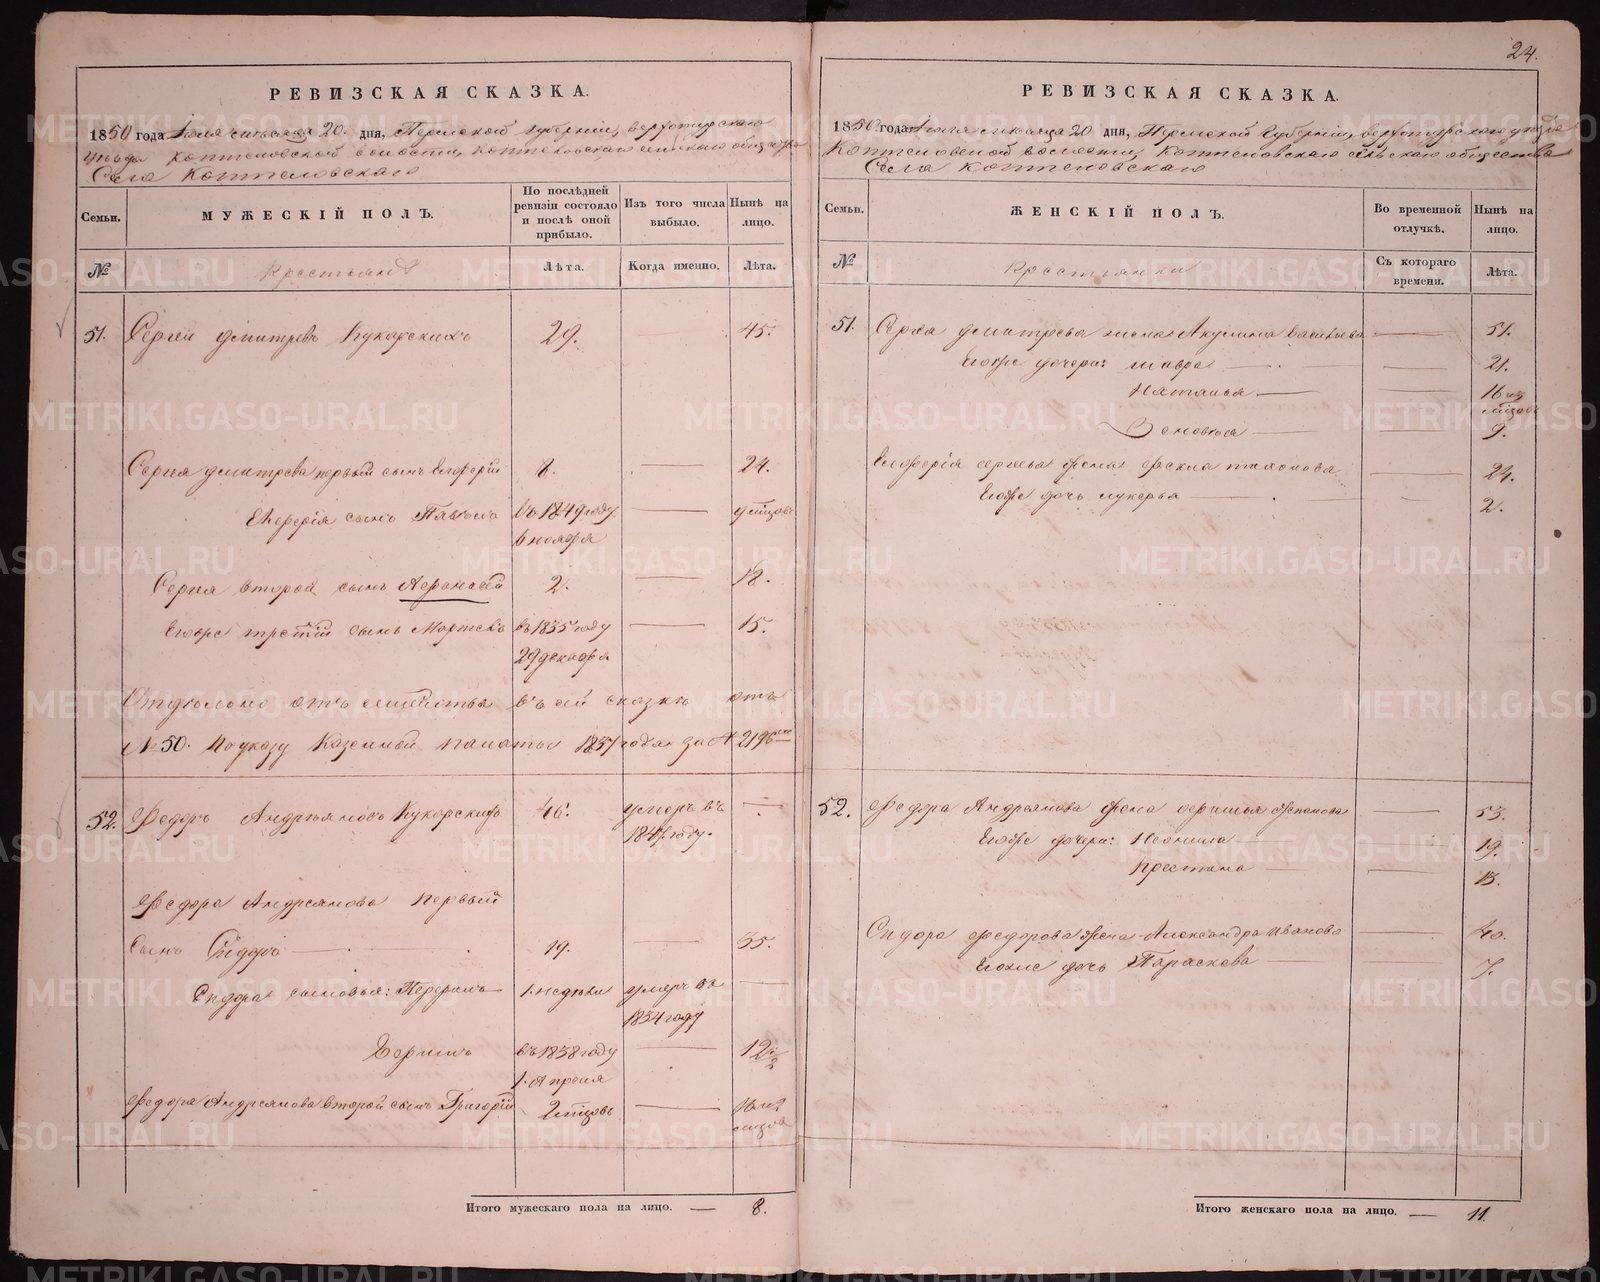 24.
РЕВИЗСКАЯ СКАЗКА.
1850 года Іюля мѣсяца 20 дня, Пермской губерніи, верхотурскаго
уѣзда коптеловской волости, коптеловскаго сельскаго общества
Села Коптеловскаго
Семьи.
МУЖЕСКІЙ ПОЛЪ.
По послѣдней ревизіи состояло и послѣ оной прибыло.
Изъ того числа выбыло.
Нынѣ на лицо.
№
Крестьяне
Лѣта.
Когда именно.
Лѣта.
51. Сергей дмитревъ Кукарскихъ 29. — 45.
Сергия дмитрева первый сынъ 8. 24.
сынъ Павелъ въ 1849 году —
6 ноября
Сергия второй сынъ Афонасей 2. — 18.
Егоже третій сынъ въ 1835 году — 15.
29 декабря
отъ семейства въ сей сказкѣ отъ
№ 50. По указу Казенной палаты 1837 года за № 2196
52. Федоръ Андреяновъ Кукарскихъ 46. умеръ въ —
году.
Федора Андреянова первый
сынъ Сидоръ — 19. — 35.
Сидора сыновья: 1. недѣли умеръ въ —
1834 году
въ 1838 году — 12
1. Апреля
Федора Андреянова второй сынъ Григорій —
Итого мужескаго пола на лицо. — 8.
РЕВИЗСКАЯ СКАЗКА.
1850 года Іюля мѣсяца 20 дня, Пермской Губерніи, верхотурскаго уѣзда
Коптеловской волости, Коптеловскаго сельскаго общества
Села Коптеловскаго
Семьи.
ЖЕНСКІЙ ПОЛЪ.
Во временной отлучкѣ.
Нынѣ на лицо.
№
Крестьянки
Съ котораго времени.
Лѣта.
51. Сергия дмитрева жена Акулина Васильева — 51.
Егоже дочери: мавра — — 21.
Наталья — — 16
— — 9.
сергиева жена — 24.
Егоже дочь лукерья — — 2.
52. Федора Андреянова жена — 53.
Егоже дочери: Неонила — 19.
— — 13.
Сидора Федорова жена Александра Иванова — 40.
дочь Параскева — — 7.
Итого женскаго пола на лицо. — 11.
METRIKI.GASO-URAL.RU